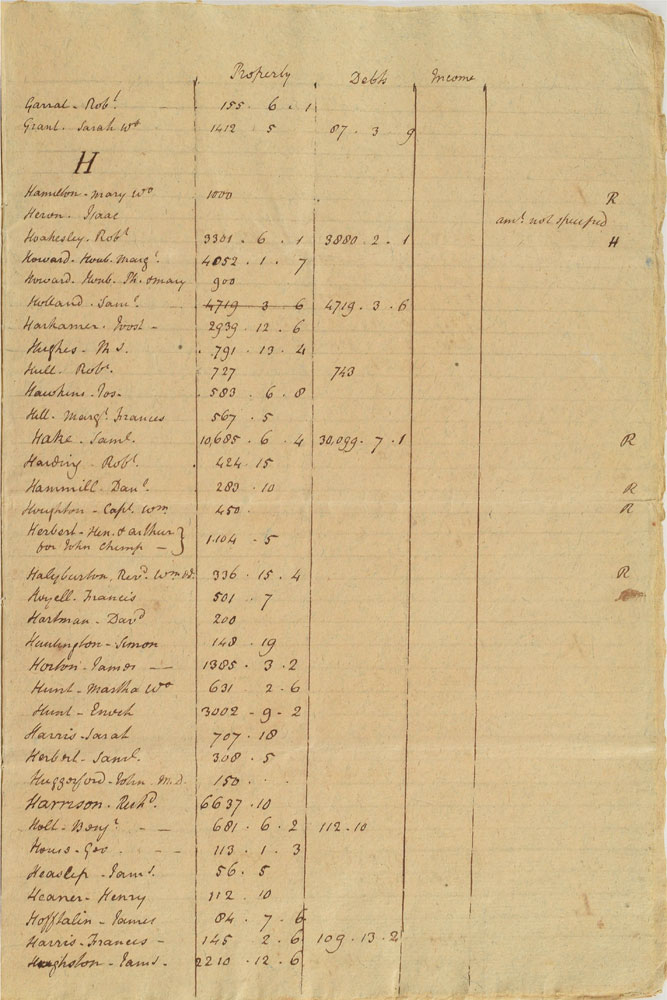 Property Debts Income
Garrat - Robt. — 155 . 6 . 1
Grant - Sarah Wo 1412 5 87 . 3 9
H
Hamilton - Mary Wo 1000 R
Heron - Isaac amt. not specified
Hoakesley - Robt. 3301 . 6 . 1 3880 . 2 . 1 H
Howard - Houb. Margt. 4052 . 1 . 7
Howard Houb. Th. & Mary 900
Holland - Saml. 4719 3 6 4719 . 3 . 6
Harkamer - Joost - 2939 . 12 . 6
Hughes - 791 . 13 . 4
Hull - Robt. 727 743
Hawkins - Jos. 583 . 6 . 8
Hill - Margt. Frances 567 . 5
Hake - Saml. 10,685 . 6 . 4 30,099 . 7 . 1 R
Harding - Robt. 424 . 15
Hammill - Danl. 283 . 10 R
Houghton - Capt. Wm 450 . R
Herbert - Hen. & Arthur } 1104 . 5
for John Chimp —
Halyburton, Revd. Wm 336 . 15 . 4 R
Francis 501 . 7
Hartman - Davd 200
Huntington - Simon 148 . 19
Horton - James — — 1385 . 3 . 2
Hunt - Martha Wo 631 2 - 6
Hunt - Enoch 3002 - 9 - 2
Harris - Sarah 707 . 18
Herbert - Saml. 308 . 5
Huggerford - John M.D. 150 . . .
Harrison - Richd. 6637 . 10
Holt - Benjn. - — 681 . 6 . 2 112 . 10
Geo - — 113 . 1 . 3
Heaslip - Jams. 56 . 5
Heaner - Henry 112 . 10
Hofftalin - James 84 . 7 . 6
Harris - Francis - 145 2 . 6 109 . 13 . 2
Hughston - Jams. 2210 . 12 . 6